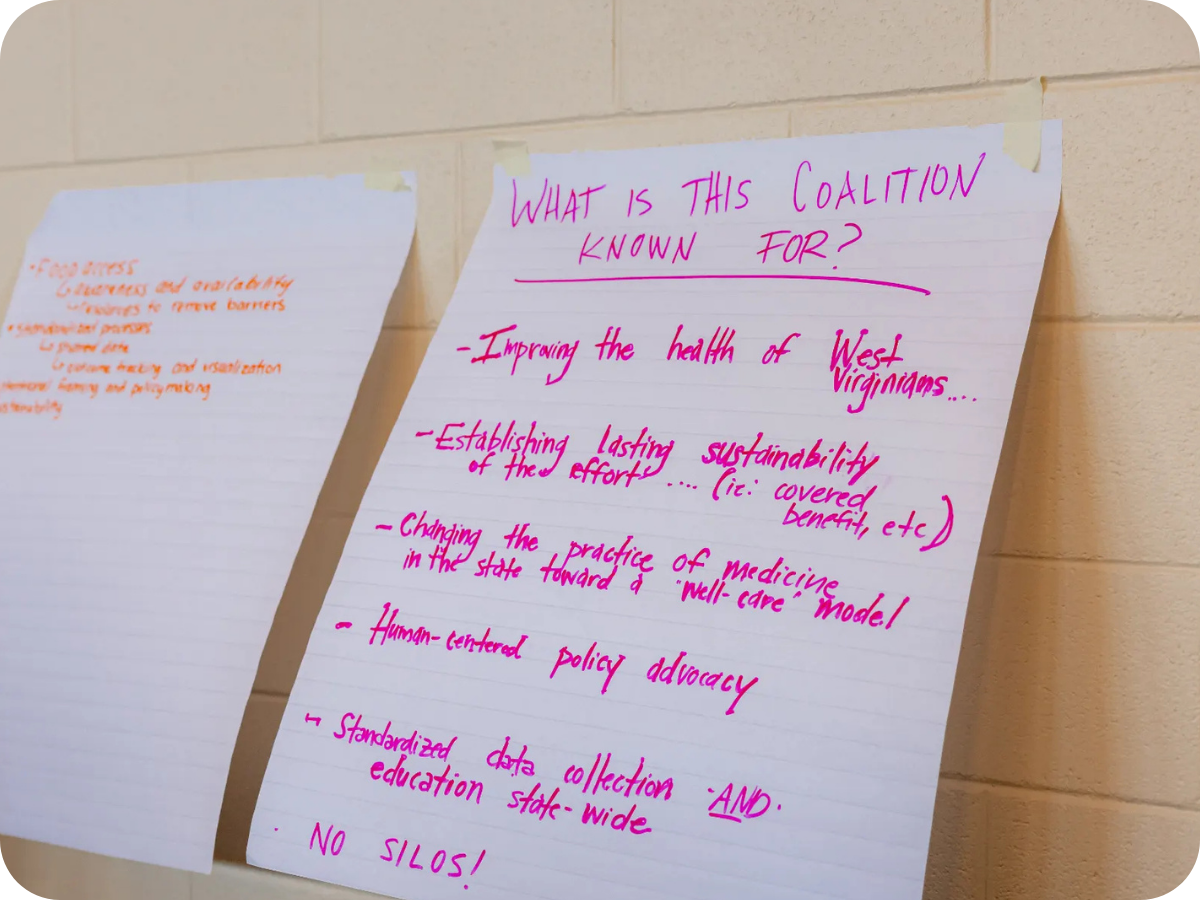 • Food access
↳ awareness and availability
↳ resources to remove barriers
• standardized processes
↳ shared data
↳ outcome tracking and visualization
intentional framing and policymaking
sustainability
WHAT IS THIS COALITION
KNOWN FOR?
- Improving the health of West
Virginians....
- Establishing lasting sustainability
of the effort .... (ie: covered
benefit, etc)
- Changing the practice of medicine
in the state toward a "well-care" model
- Human-centered policy advocacy
- Standardized data collection AND
education state-wide
· NO SILOS!